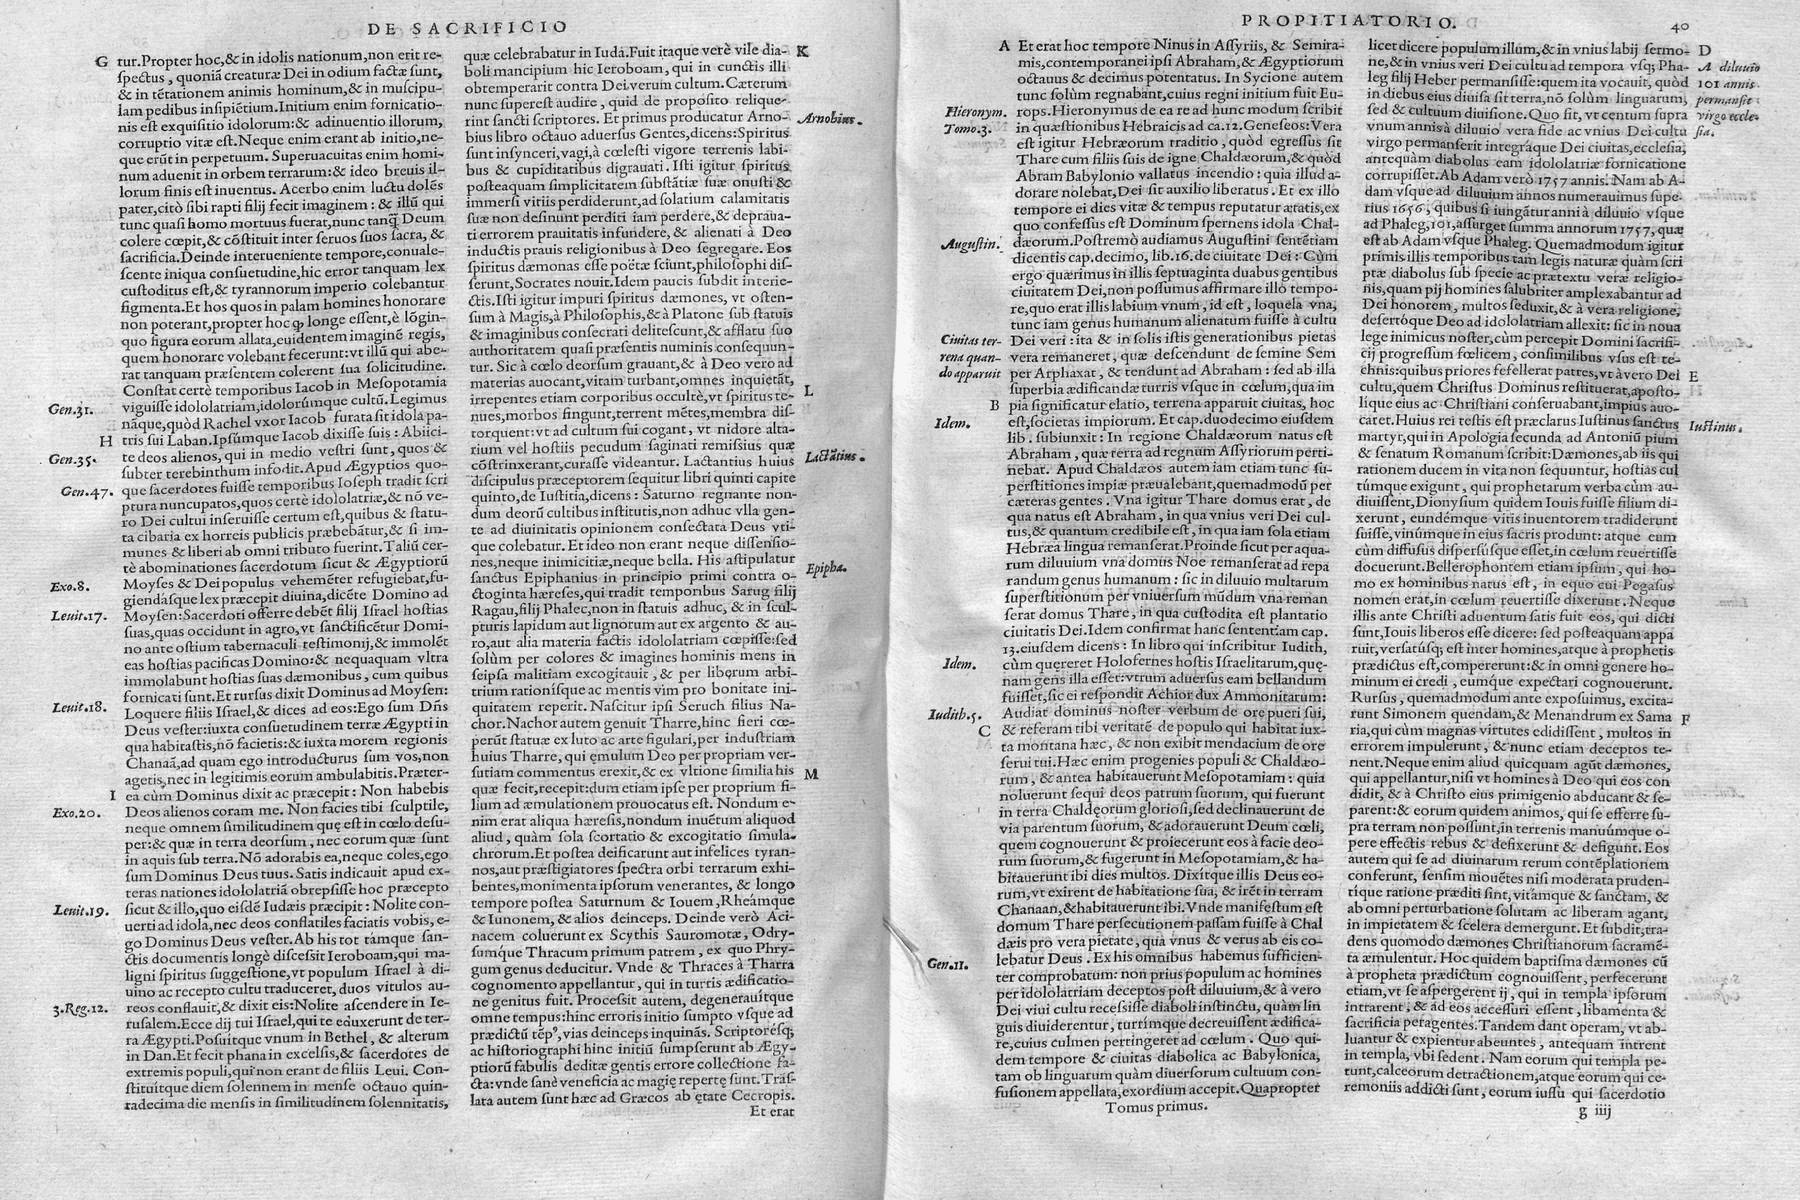 DE SACRIFICIO
G tur.Propter hoc,& in idolis nationum,non erit re-
spectus, quoniã creaturæ Dei in odium factæ sunt,
& in tẽtationem animis hominum,& in muscipu-
lam pedibus insipiẽtium.Initium enim fornicatio-
nis est exquisitio idolorum:& adinuentio illorum,
corruptio vitæ est.Neque enim erant ab initio,ne-
que erũt in perpetuum. Superuacuitas enim homi-
num aduenit in orbem terrarum:& ideo breuis il-
lorum finis est inuentus. Acerbo enim luctu dolẽs
pater,citò sibi rapti filij fecit imaginem : & illũ qui
tunc quasi homo mortuus fuerat,nunc tanq̃ Deum
colere cœpit,& cõstituit inter seruos suos sacra, &
sacrificia.Deinde interueniente tempore,conuale-
scente iniqua consuetudine,hic error tanquam lex
custoditus est,& tyrannorum imperio colebantur
figmenta.Et hos quos in palam homines honorare
non poterant,propter hoc ꝙ longe essent,è lõgin-
quo figura eorum allata,euidentem imaginẽ regis,
quem honorare volebant fecerunt:vt illũ qui abe-
rat tanquam præsentem colerent sua solicitudine.
Constat certè temporibus Iacob in Mesopotamia
viguisse idololatriam,idolorúmque cultũ.Legimus
Gen.31. nãque,quòd Rachel vxor Iacob furata sit idola pa-
H tris sui Laban.Ipsúmque Iacob dixisse suis : Abiici-
Gen.35. te deos alienos, qui in medio vestri sunt, quos &
subter terebinthum infodit.Apud Ægyptios quo-
Gen.47. que sacerdotes fuisse temporibus Ioseph tradit scri
ptura nuncupatos,quos certè idololatriæ,& nõ ve-
ro Dei cultui inseruisse certum est,quibus & statu-
ta cibaria ex horreis publicis præbebãtur,& si im-
munes & liberi ab omni tributo fuerint.Taliũ cer-
tè abominationes sacerdotum sicut & Ægyptiorũ
Exo.8. Moyses & Dei populus vehemẽter refugiebat,fu-
giendásque lex præcepit diuina,dicẽte Domino ad
Leuit.17. Moysen:Sacerdoti offerre debẽt filij Israel hostias
suas,quas occidunt in agro,vt sanctificẽtur Domi-
no ante ostium tabernaculi testimonij,& immolẽt
eas hostias pacificas Domino:& nequaquam vltra
immolabunt hostias suas dæmonibus, cum quibus
fornicati sunt.Et rursus dixit Dominus ad Moysen:
Leuit.18. Loquere filiis Israel,& dices ad eos:Ego sum Dñs
Deus vester:iuxta consuetudinem terræ Ægypti in
qua habitastis,nõ facietis:& iuxta morem regionis
Chanaã,ad quam ego introducturus sum vos,non
agetis,nec in legitimis eorum ambulabitis.Præter-
I ea cùm Dominus dixit ac præcepit : Non habebis
Exo.20. Deos alienos coram me. Non facies tibi sculptile,
neque omnem similitudinem quę est in cœlo desu-
per:& quæ in terra deorsum, nec eorum quæ sunt
in aquis sub terra.Nõ adorabis ea,neque coles,ego
sum Dominus Deus tuus. Satis indicauit apud ex-
teras nationes idololatriã obrepsisse hoc præcepto
Leuit.19. sicut & illo,quo eisdẽ Iudæis præcipit : Nolite con-
uerti ad idola,nec deos conflatiles faciatis vobis, e-
go Dominus Deus vester. Ab his tot támque san-
ctis documentis longè discessit Ieroboam,qui ma-
ligni spiritus suggestione,vt populum Israel à di-
uino ac recepto cultu traduceret, duos vitulos au-
3.Reg.12. reos conflauit,& dixit eis:Nolite ascendere in Ie-
rusalem.Ecce dij tui Israel,qui te eduxerunt de ter-
ra Ægypti.Posuítque vnum in Bethel, & alterum
in Dan.Et fecit phana in excelsis,& sacerdotes de
extremis populi,qui non erant de filiis Leui. Con-
stituítque diem solennem in mense octauo quin-
tadecima die mensis in similitudinem solennitatis,
quæ celebrabatur in Iuda.Fuit itaque verè vile dia- K
boli mancipium hic Ieroboam, qui in cunctis illi
obtemperarit contra Dei verum cultum. Cæterum
nunc superest audire, quid de proposito relique-
rint sancti scriptores. Et primus producatur Arno- Arnobius.
bius libro octauo aduersus Gentes,dicens:Spiritus
sunt insynceri,vagi,à cœlesti vigore terrenis labi-
bus & cupiditatibus digrauati. Isti igitur spiritus
posteaquam simplicitatem substãtiæ suæ onusti &
immersi vitiis perdiderunt,ad solatium calamitatis
suæ non desinunt perditi iam perdere,& depraua-
ti errorem prauitatis infundere, & alienati à Deo
inductis prauis religionibus à Deo segregare. Eos
spiritus dæmonas esse poëtæ sciunt,philosophi dis-
serunt,Socrates nouit.Idem paucis subdit interie-
ctis.Isti igitur impuri spiritus dæmones, vt osten-
sum à Magis,à Philosophis,& à Platone sub statuis
& imaginibus consecrati delitescunt,& afflatu suo
authoritatem quasi præsentis numinis consequun-
tur. Sic à cœlo deorsum grauant,& à Deo vero ad
materias auocant,vitam turbant,omnes inquietãt,
irrepentes etiam corporibus occultè,vt spiritus te- L
nues,morbos fingunt,terrent mẽtes,membra dis-
torquent:vt ad cultum sui cogant, vt nidore alta-
rium vel hostiis pecudum saginati remissius quæ
cõstrinxerant,curasse videantur. Lactantius huius Lactãtius.
discipulus præceptorem sequitur libri quinti capite
quinto,de Iustitia,dicens : Saturno regnante non-
dum deorũ cultibus institutis,non adhuc vlla gen-
te ad diuinitatis opinionem consectata Deus vti-
que colebatur. Et ideo non erant neque dissensio-
nes,neque inimicitiæ,neque bella. His astipulatur
sanctus Epiphanius in principio primi contra o- Epipha.
ctoginta hæreses,qui tradit temporibus Sarug filij
Ragau,filij Phalec,non in statuis adhuc, & in scul-
pturis lapidum aut lignorum aut ex argento & au-
ro,aut alia materia factis idololatriam cœpisse:sed
solùm per colores & imagines hominis mens in
seipsa malitiam excogitauit, & per liberum arbi-
trium rationísque ac mentis vim pro bonitate ini-
quitatem reperit. Nascitur ipsi Seruch filius Na-
chor.Nachor autem genuit Tharre,hinc fieri cœ-
perũt statuæ ex luto ac arte figulari,per industriam
huius Tharre,qui ęmulum Deo per propriam ver-
sutiam commentus erexit,& ex vltione similia his M
quæ fecit,recepit:dum etiam ipse per proprium fi-
lium ad æmulationem prouocatus est. Nondum e-
nim erat aliqua hæresis,nondum inuẽtum aliquod
aliud, quàm sola scortatio & excogitatio simula-
chrorum.Et postea deificarunt aut infelices tyran-
nos,aut præstigiatores spectra orbi terrarum exhi-
bentes,monimenta ipsorum venerantes, & longo
tempore postea Saturnum & Iouem,Rheámque
& Iunonem, & alios deinceps. Deinde verò Aci-
nacem coluerunt ex Scythis Sauromotæ, Odry-
sumque Thracum primum patrem, ex quo Phry-
gum genus deducitur. Vnde & Thraces à Tharra
cognomento appellantur, qui in turris ædificatio-
ne genitus fuit. Processit autem, degenerauítque
omne tempus:hinc erroris initio sumpto vsque ad
prædictũ tẽp⁹,vias deinceps inquinãs. Scriptorésq;
ac historiographi hinc initiũ sumpserunt ab Ægy-
ptiorũ fabulis deditæ gentis errore collectione fa-
cta:vnde sanè veneficia ac magię repertę sunt.Trãs-
lata autem sunt hæc ad Græcos ab ętate Cecropis.
Et erat
PROPITIATORIO. 40
A Et erat hoc tempore Ninus in Assyriis, & Semira-
mis,contemporanei ipsi Abraham,& Ægyptiorum
octauus & decimus potentatus. In Sycione autem
tunc solùm regnabant,cuius regni initium fuit Eu-
Hieronym. rops.Hieronymus de ea re ad hunc modum scribit
Tomo.3. in quæstionibus Hebraicis ad ca.12.Geneseos:Vera
est igitur Hebræorum traditio, quòd egressus sit
Thare cum filiis suis de igne Chaldæorum,& quòd
Abram Babylonio vallatus incendio : quia illud a-
dorare nolebat,Dei sit auxilio liberatus. Et ex illo
tempore ei dies vitæ & tempus reputatur ætatis,ex
quo confessus est Dominum spernens idola Chal-
Augustin. dæorum.Postremò audiamus Augustini sentẽtiam
dicentis cap.decimo, lib.16. de ciuitate Dei : Cùm
ergo quærimus in illis septuaginta duabus gentibus
ciuitatem Dei,non possumus affirmare illo tempo-
re,quo erat illis labium vnum, id est, loquela vna,
tunc iam genus humanum alienatum fuisse à cultu
Ciuitas ter- Dei veri : ita & in solis istis generationibus pietas
rena quan- vera remaneret, quæ descendunt de semine Sem
do apparuit per Arphaxat, & tendunt ad Abraham : sed ab illa
superbia ædificandæ turris vsque in cœlum,qua im
B pia significatur elatio, terrena apparuit ciuitas, hoc
Idem. est,societas impiorum. Et cap.duodecimo eiusdem
lib. subiunxit: In regione Chaldæorum natus est
Abraham, quæ terra ad regnum Assyriorum perti-
nebat. Apud Chaldæos autem iam etiam tunc su-
perstitiones impiæ præualebant,quemadmodũ per
cæteras gentes. Vna igitur Thare domus erat, de
qua natus est Abraham, in qua vnius veri Dei cul-
tus,& quantum credibile est, in qua iam sola etiam
Hebræa lingua remanserat.Proinde sicut per aqua-
rum diluuium vna domus Noe remanserat ad repa
randum genus humanum : sic in diluuio multarum
superstitionum per vniuersum mũdum vna reman
serat domus Thare, in qua custodita est plantatio
ciuitatis Dei.Idem confirmat hanc sententiam cap.
13.eiusdem dicens : In libro qui inscribitur Iudith,
Idem. cùm quęreret Holofernes hostis Israelitarum,quę-
nam gens illa esset:vtrum aduersus eam bellandum
fuisset,sic ei respondit Achior dux Ammonitarum:
Iudith.5. Audiat dominus noster verbum de ore pueri sui,
C & referam tibi veritatẽ de populo qui habitat iux-
ta montana hæc, & non exibit mendacium de ore
serui tui.Hæc enim progenies populi & Chaldæo-
rum, & antea habitauerunt Mesopotamiam : quia
noluerunt sequi deos patrum suorum, qui fuerunt
in terra Chaldęorum gloriosi,sed declinauerunt de
via parentum suorum, & adorauerunt Deum cœli,
quem cognouerunt & proiecerunt eos à facie deo-
rum suorum,& fugerunt in Mesopotamiam,& ha-
bitauerunt ibi dies multos. Dixítque illis Deus eo-
rum,vt exirent de habitatione sua, & irẽt in terram
Chanaan,& habitauerunt ibi.Vnde manifestum est
domum Thare persecutionem passam fuisse à Chal
dæis pro vera pietate, qua vnus & verus ab eis co-
lebatur Deus. Ex his omnibus habemus sufficien-
Gen.11. ter comprobatum: non prius populum ac homines
per idololatriam deceptos post diluuium,& à vero
Dei viui cultu recessisse diaboli instinctu, quàm lin
guis diuiderentur, turrímque decreuissent ædifica-
re,cuius culmen pertingeret ad cœlum. Quo qui-
dem tempore & ciuitas diabolica ac Babylonica,
tam ob linguarum quàm diuersorum cultuum con-
fusionem appellata,exordium accepit. Quapropter
Tomus primus.
licet dicere populum illum,& in vnius labij sermo- D
ne,& in vnius veri Dei cultu ad tempora vsq; Pha- A diluuio
leg filij Heber permansisse:quem ita vocauit, quòd 101 annis
in diebus eius diuisa sit terra,nõ solùm linguarum, permansit
sed & cultuum diuisione. Quo sit, vt centum supra virgo eccle-
vnum annis à diluuio vera fide ac vnius Dei cultu sia.
virgo permanserit integráque Dei ciuitas,ecclesia,
antequàm diabolus eam idololatriæ fornicatione
corrupisset. Ab Adam verò 1757 annis. Nam ab A-
dam vsque ad diluuium annos numerauimus supe-
rius 1656, quibus si iungãtur anni à diluuio vsque
ad Phaleg,101,assurget summa annorum 1757, quæ
est ab Adam vsque Phaleg. Quemadmodum igitur
primis illis temporibus tam legis naturæ quàm scri
ptæ diabolus sub specie ac prætextu veræ religio-
nis,quam pij homines salubriter amplexabantur ad
Dei honorem, multos seduxit,& à vera religione,
desertóque Deo ad idololatriam allexit: sic in noua
lege inimicus noster,cùm percepit Domini sacrifi-
cij progressum fœlicem, consimilibus vsus est te-
chnis:quibus priores fefellerat patres,vt à vero Dei E
cultu,quem Christus Dominus restituerat,aposto-
lique eius ac Christiani conseruabant,impius auo-
caret.Huius rei testis est præclarus Iustinus sanctus Iustinus.
martyr,qui in Apologia secunda ad Antoniũ pium
& senatum Romanum scribit:Dæmones,ab iis qui
rationem ducem in vita non sequuntur, hostias cul
túmque exigunt, qui prophetarum verba cùm au-
diuissent,Dionysium quidem Iouis fuisse filium di-
xerunt, eundémque vitis inuentorem tradiderunt
fuisse,vinúmque in eius sacris produnt: atque cum
cùm diffusus dispersúsque esset,in cœlum reuertisse
docuerunt.Bellerophontem etiam ipsum, qui ho-
mo ex hominibus natus est, in equo cui Pegasus
nomen erat,in cœlum reuertisse dixerunt. Neque
illis ante Christi aduentum satis fuit eos, qui dicti
sunt,Iouis liberos esse dicere: sed posteaquam appa
ruit,versatúsq; est inter homines,atque à prophetis
prædictus est,compererunt:& in omni genere ho-
minum ei credi, eumque expectari cognouerunt.
Rursus, quemadmodum ante exposuimus, excita-
runt Simonem quendam,& Menandrum ex Sama F
ria,qui cùm magnas virtutes edidissent, multos in
errorem impulerunt, & nunc etiam deceptos te-
nent.Neque enim aliud quicquam agũt dæmones,
qui appellantur,nisi vt homines à Deo qui eos con
didit, & à Christo eius primigenio abducant & se-
parent:& eorum quidem animos, qui se efferre su-
pra terram non possunt,in terrenis manuúmque o-
pere effectis rebus & defixerunt & defigunt. Eos
autem qui se ad diuinatum rerum contẽplationem
conferunt, sensim mouẽtes nisi moderata pruden-
tíque ratione præditi sint, vitámque & sanctam, &
ab omni perturbatione solutam ac liberam agant,
in impietatem & scelera demergunt. Et subdit;tra-
dens quomodo dæmones Christianorum sacramẽ-
ta æmulentur. Hoc quidem baptisma dæmones cũ
à propheta prædictum cognouissent, perfecerunt
etiam,vt se aspergerent ij, qui in templa ipsorum
intrarent, & ad eos accessuri essent, libamenta &
sacrificia peragentes.Tandem dant operam, vt ab-
luantur & expientur abeuntes, antequam intrent
in templa, vbi sedent. Nam eorum qui templa pe-
tunt,calceorum detractionem,atque eorum qui ce-
remoniis addicti sunt, eorum iussu qui sacerdotio
g iiij